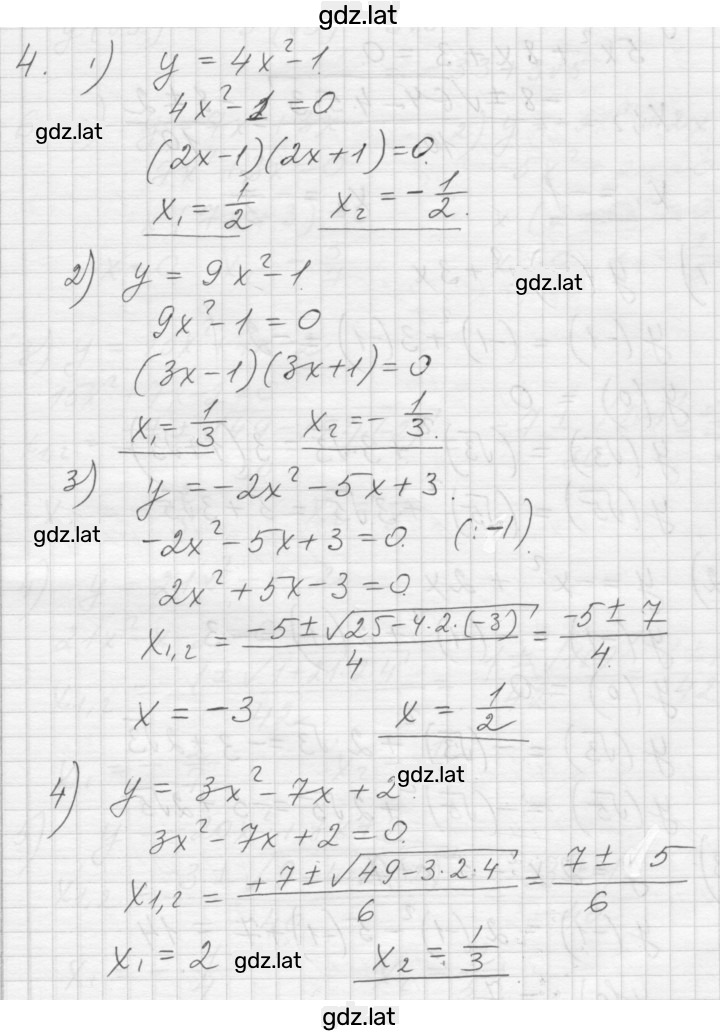 gdz.lat
4. 1) y = 4x² - 1
4x² - 1 = 0
gdz.lat
(2x - 1)(2x + 1) = 0.
x₁ = 1/2 x₂ = - 1/2.
2) y = 9x² - 1
gdz.lat
9x² - 1 = 0
(3x - 1)(3x + 1) = 0
x₁ = 1/3 x₂ = - 1/3.
3) y = -2x² - 5x + 3.
gdz.lat
-2x² - 5x + 3 = 0. (: -1).
2x² + 5x - 3 = 0
x₁,₂ = (-5 ± √(25 - 4·2·(-3)))/4 = (-5 ± 7)/4.
x = -3 x = 1/2
4) y = 3x² - 7x + 2.
gdz.lat
3x² - 7x + 2 = 0.
x₁,₂ = (+7 ± √(49 - 3·2·4))/6 = (7 ± 5)/6
x₁ = 2 x₂ = 1/3
gdz.lat
gdz.lat